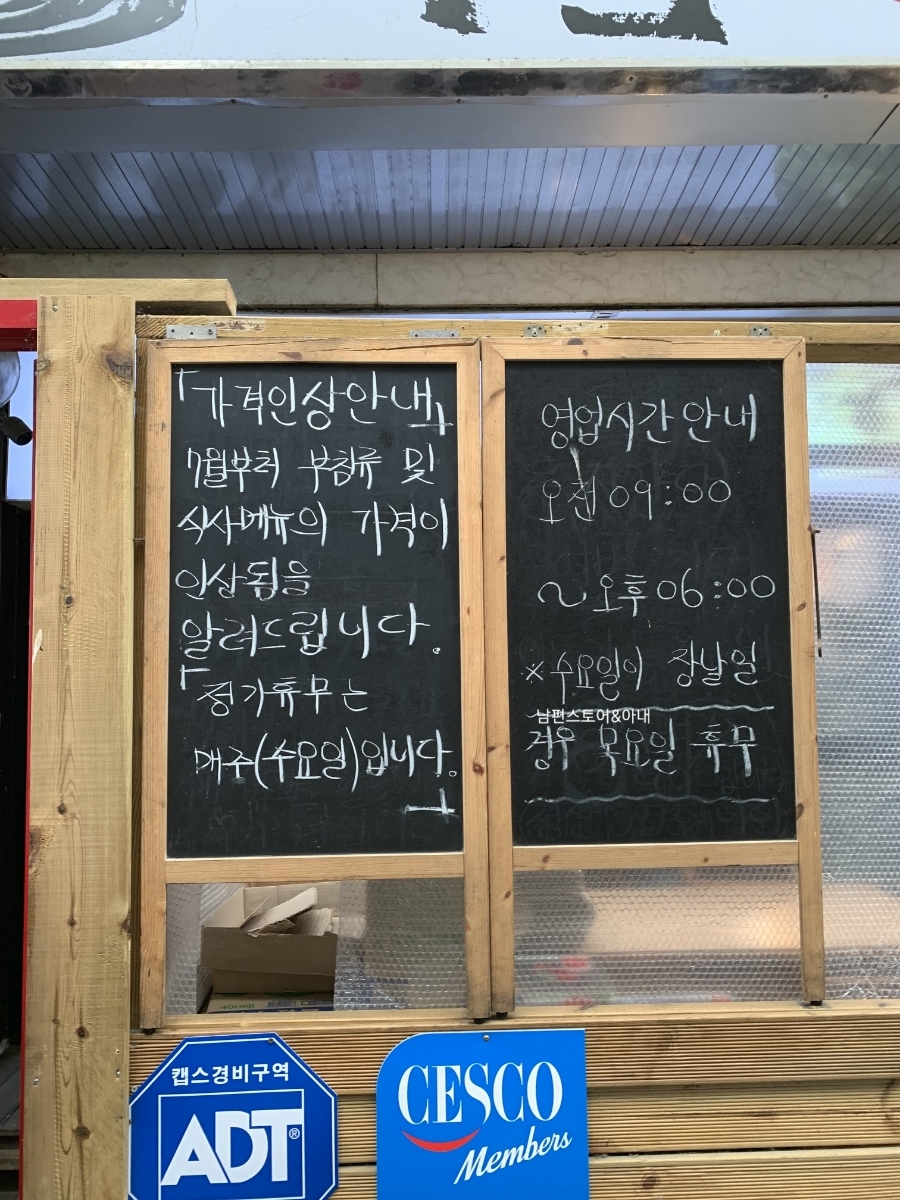 「가격인상안내」
7월부터 부침류 및
식사메뉴의 가격이
인상됨을
알려드립니다.
「정기휴무는
매주(수요일)입니다.」
영업시간안내
오전 09:00
~오후 06:00
※수요일이 장날일
남편스토어&아내
경우 목요일 휴무
캡스경비구역
ADT®
CESCO
Members